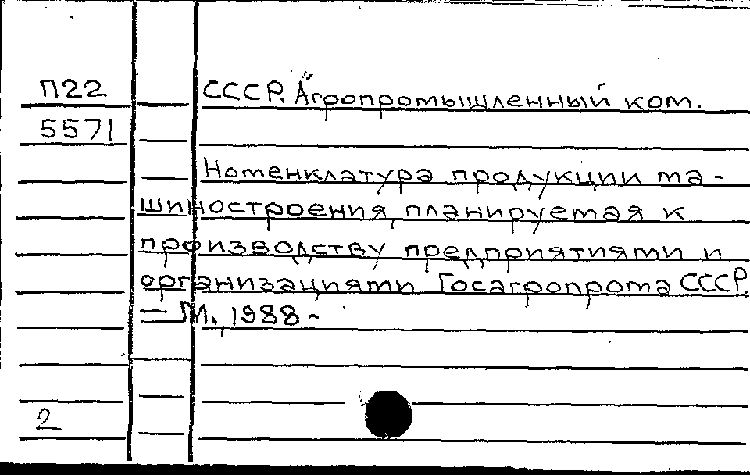 П22 СССР. Агропромышленный ком.
5571
Номенклатура продукции ма-
шиностроения, планируемая к
производству предприятиями и
организациями Госагропрома СССР.
— М., 1988 -
2